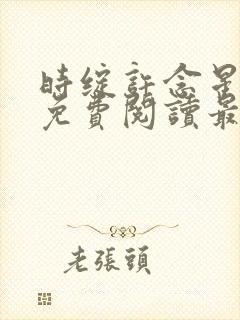 時綻許念星
免費閱讀最
老張頭